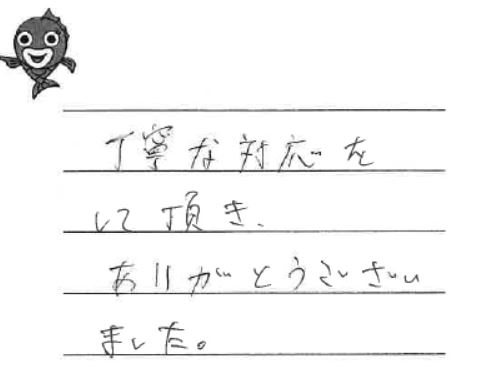 丁寧な対応を
して頂き、
ありがとうございい
ました。